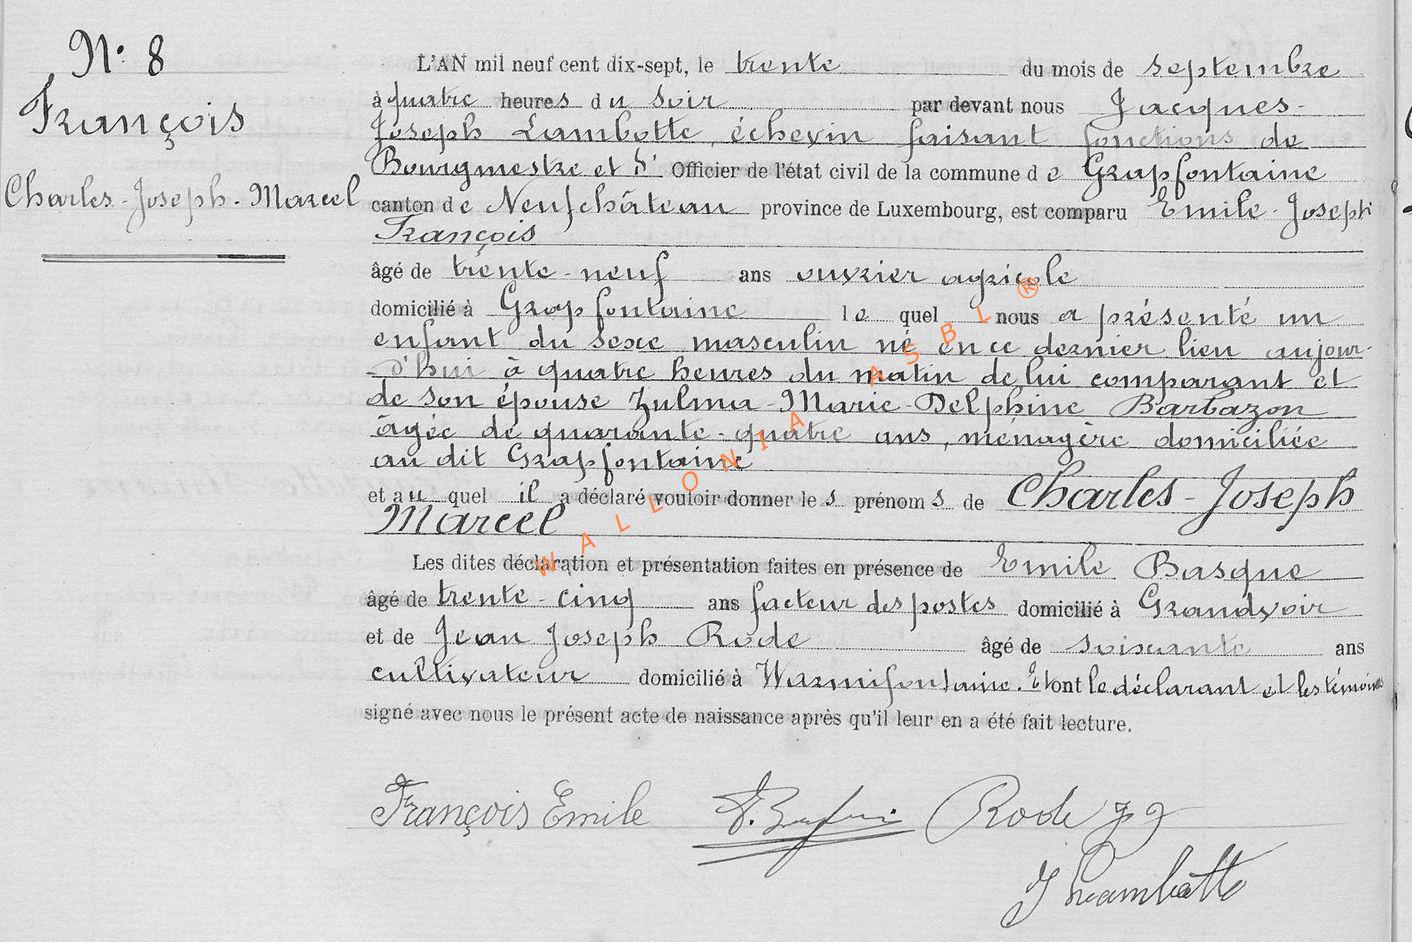 N° 8
François
Charles-Joseph-Marcel
L'AN mil neuf cent dix-sept, le trente du mois de septembre
à quatre heures du soir par devant nous Jacques-
Joseph Lambotte, échevin faisant fonctions de
Bourgmestre et d' Officier de l'état civil de la commune de Grapfontaine
canton de Neufchâteau province de Luxembourg, est comparu Emile-Joseph
François
âgé de trente-neuf ans ouvrier agricole
domicilié à Grapfontaine lequel nous a présenté un
enfant du sexe masculin né en ce dernier lieu aujour-
-d'hui à quatre heures du matin de lui comparant et
de son épouse Zulma-Marie-Delphine Barbazon
âgée de quarante-quatre ans, ménagère domiciliée
au dit Grapfontaine
et auquel il a déclaré vouloir donner les prénoms de Charles-Joseph
Marcel
Les dites déclaration et présentation faites en présence de Emile Basque
âgé de trente-cinq ans facteur des postes domicilié à Grandvoir
et de Jean Joseph Rode âgé de soixante ans
cultivateur domicilié à Warmifontaine. Et ont le déclarant et les témoins
signé avec nous le présent acte de naissance après qu'il leur en a été fait lecture.
François Emile Rode JJ
J Lambotte
WALLONIA ASBL ®